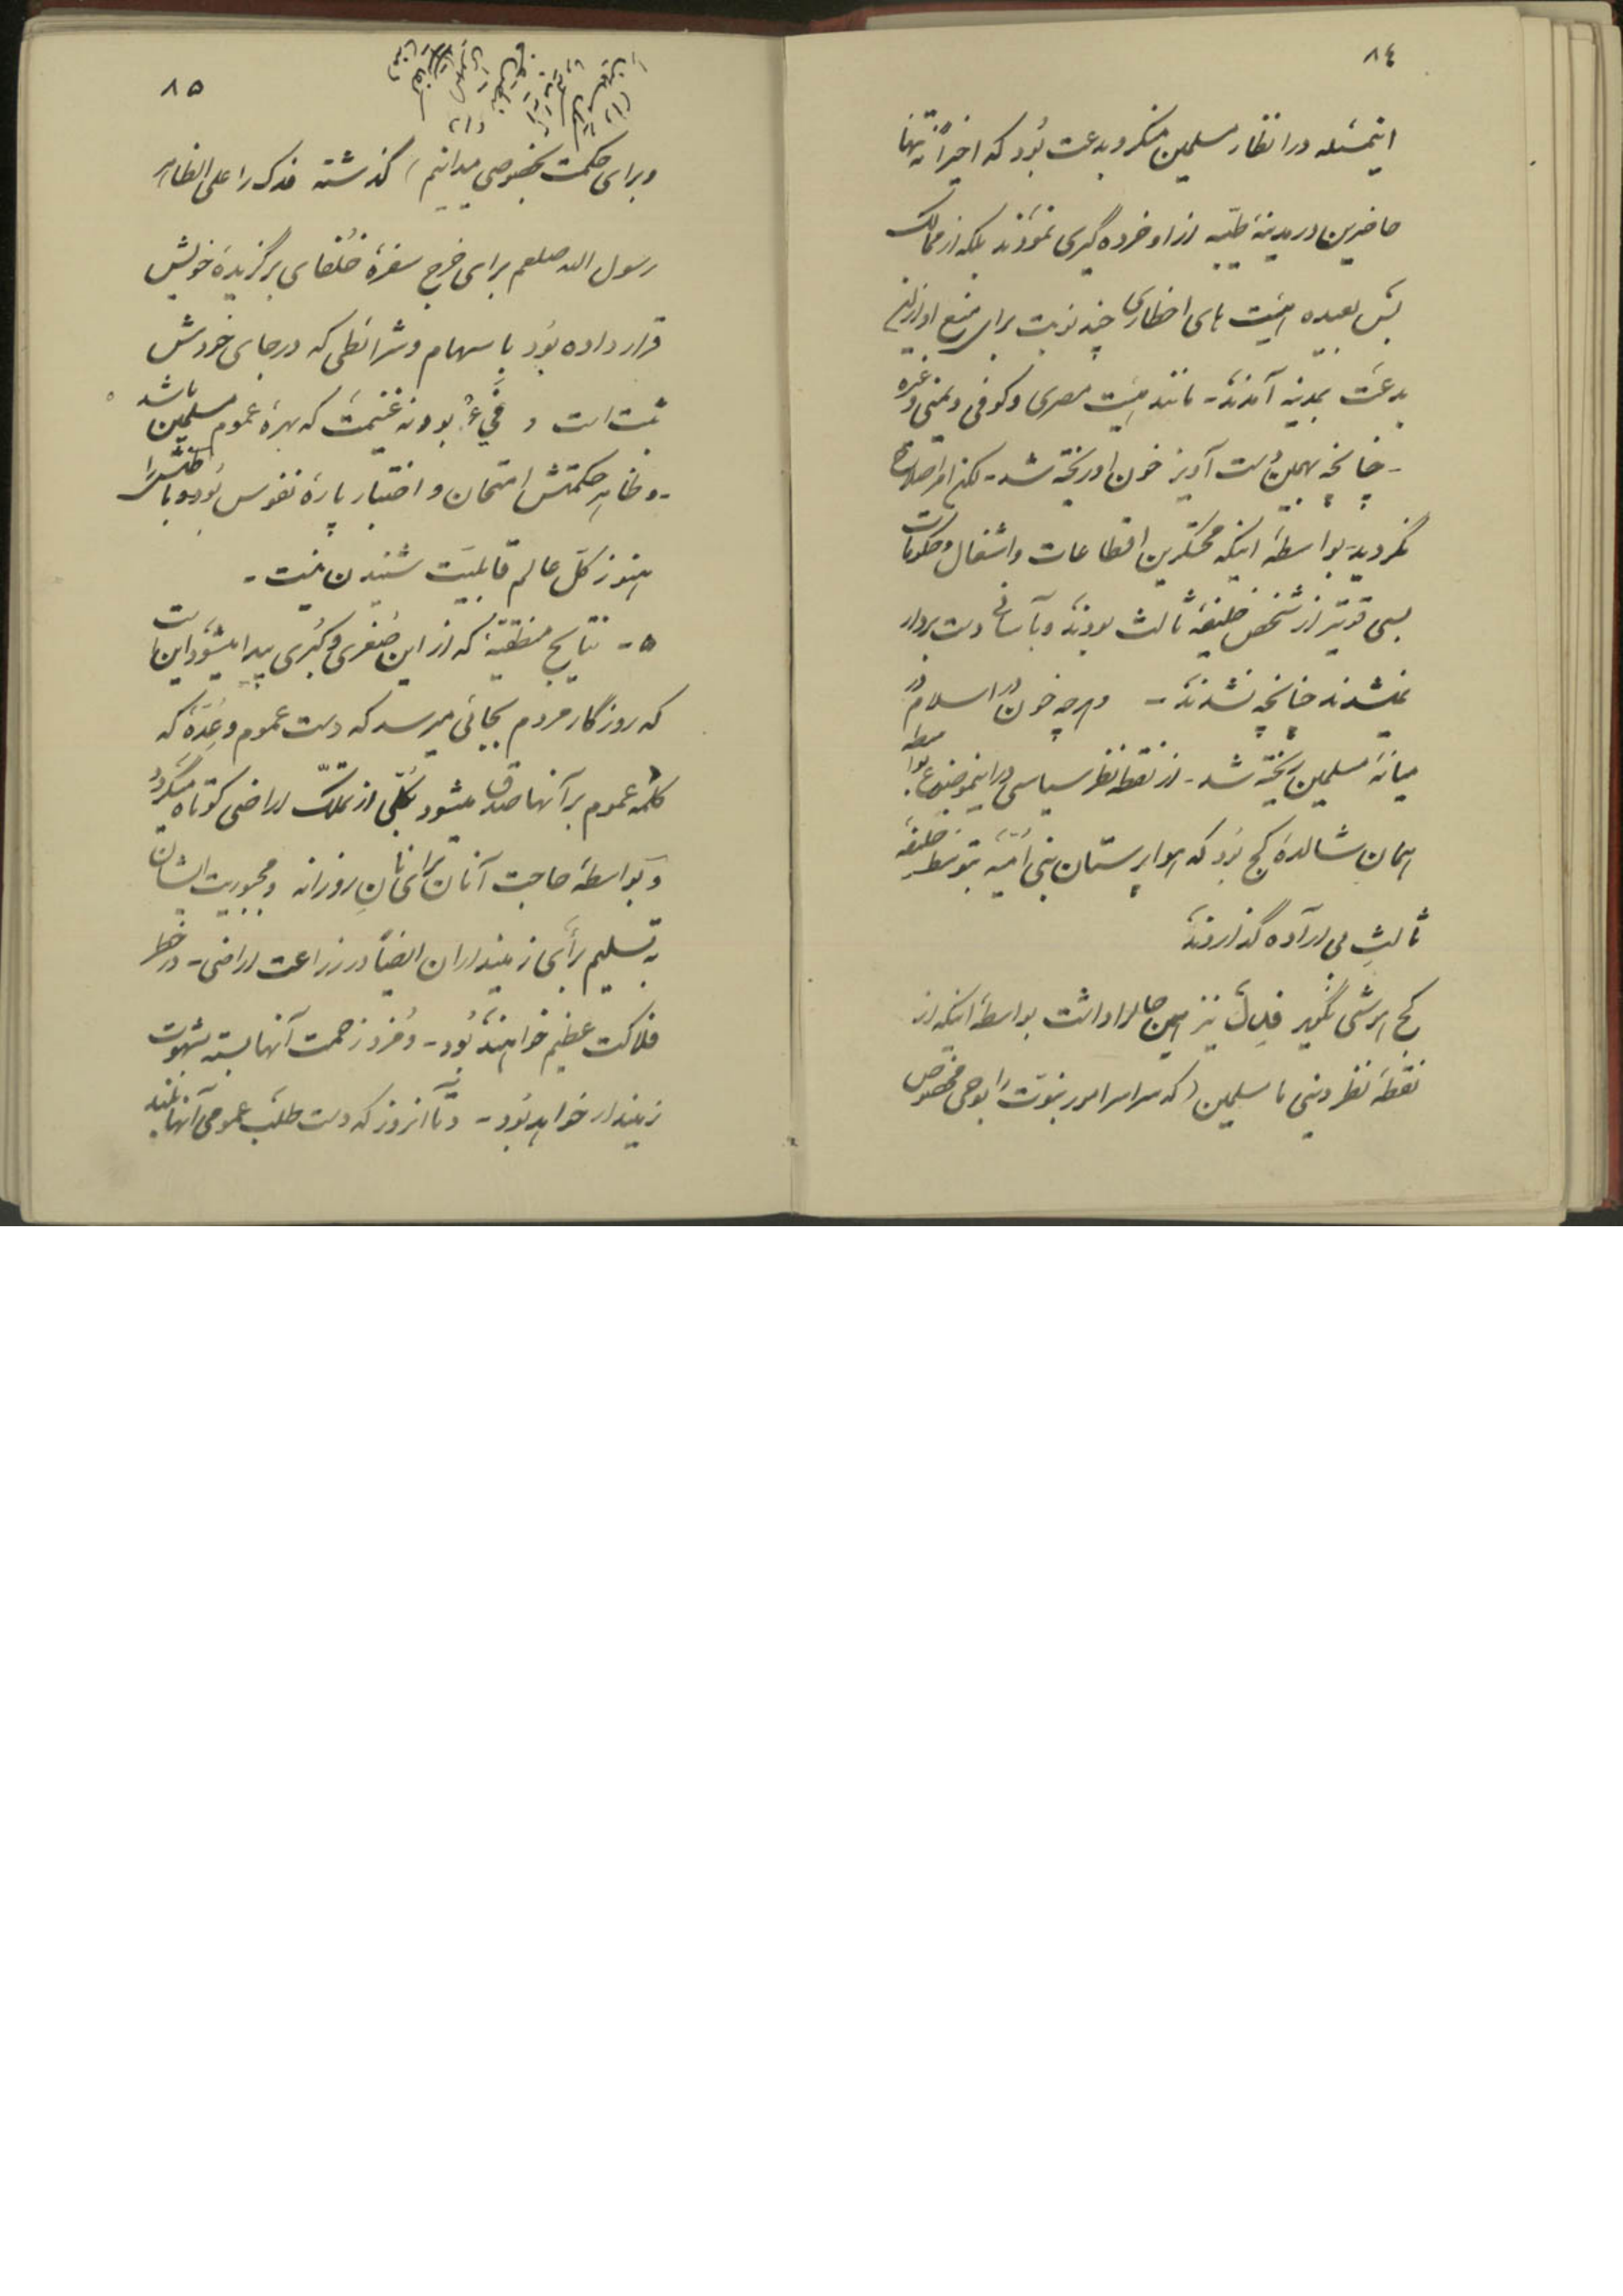 ٨٤
اینمسئله در انظار مسلمین منکر و بدعت بُود که اخیراً نه تنها
حاضرین در مدینهٔ طیّبه از او خرده گیری نمودند بلکه از ممالک
بس بعیده هیئت های اخطاری چند نوبت برای منع او از این
بدعت بمدینه آمدند - مانند هیئت مصری و کوفی و یمنی و غیره
- چنانچه بهمین دست آویز خون او ریخته شد - لکن امر اصلاح
نگردید بواسطهٔ اینکه محتکرین اقطاعات و اشغال و حکومات
بسی قویتر از شخص خلیفهٔ ثالث بودند و بآسانی دست بردار
نمیشدند چنانچه نشدند - و هرچه خون در اسلام در
میانهٔ مسلمین ریخته شد - از نقطه نظر سیاسی در اینموضوع بواسطه
همان شالدهٔ کج بُود که هوا پرستان بنی اُمیّه بتوسط خلیفهٔ
ثالثِ بی اراده گذاردند
کج ار شی نگیر فدک نیز همین حال را داشت بواسطهٔ اینکه از
نقطهٔ نظر دینی ما مسلمین (که سراسر امور نبوّت را بوحی مخصوص
٨٥
و برای حکمت بخصوصی میدانیم) گذشته فدک را علی الظاهر
رسول الله صلعم برای خرج سفرهٔ خُلفای برگزیدهٔ خویش
قرار داده بُود با سهام و شرائطی که در جای خودش
ثبت است و فَیْء بود نه غنیمت که بهرهٔ عموم مسلمین باشد
- و ظاهر حکمتش امتحان و اختبار پارهٔ نفوس بُود و باطنش را
هنوز کلّ عالم قابلیّت شنیدن نیست -
٥ - نتایج منطقیّهٔ که از این صُغری و کُبری پیدا میشود این است
که روزگار مردم بجائی میرسد که دست عموم و عِدّهٔ که
کلمهٔ عموم بر آنها صدق میشود بکلّی از تملّک اراضی کوتاه میگردد
و بواسطهٔ حاجت آنان برای نانِ روزانه و مجبوریت ایشان
به تسلیم برأی زمینداران ایضاً در زراعت اراضی - در خطر
فلاکت عظیم خواهند بُود - و مُزد زحمت آنها بسته بشهوت
زمیندار خواهد بُود - و تا آنروز که دست طلب عمومی آنها بلند